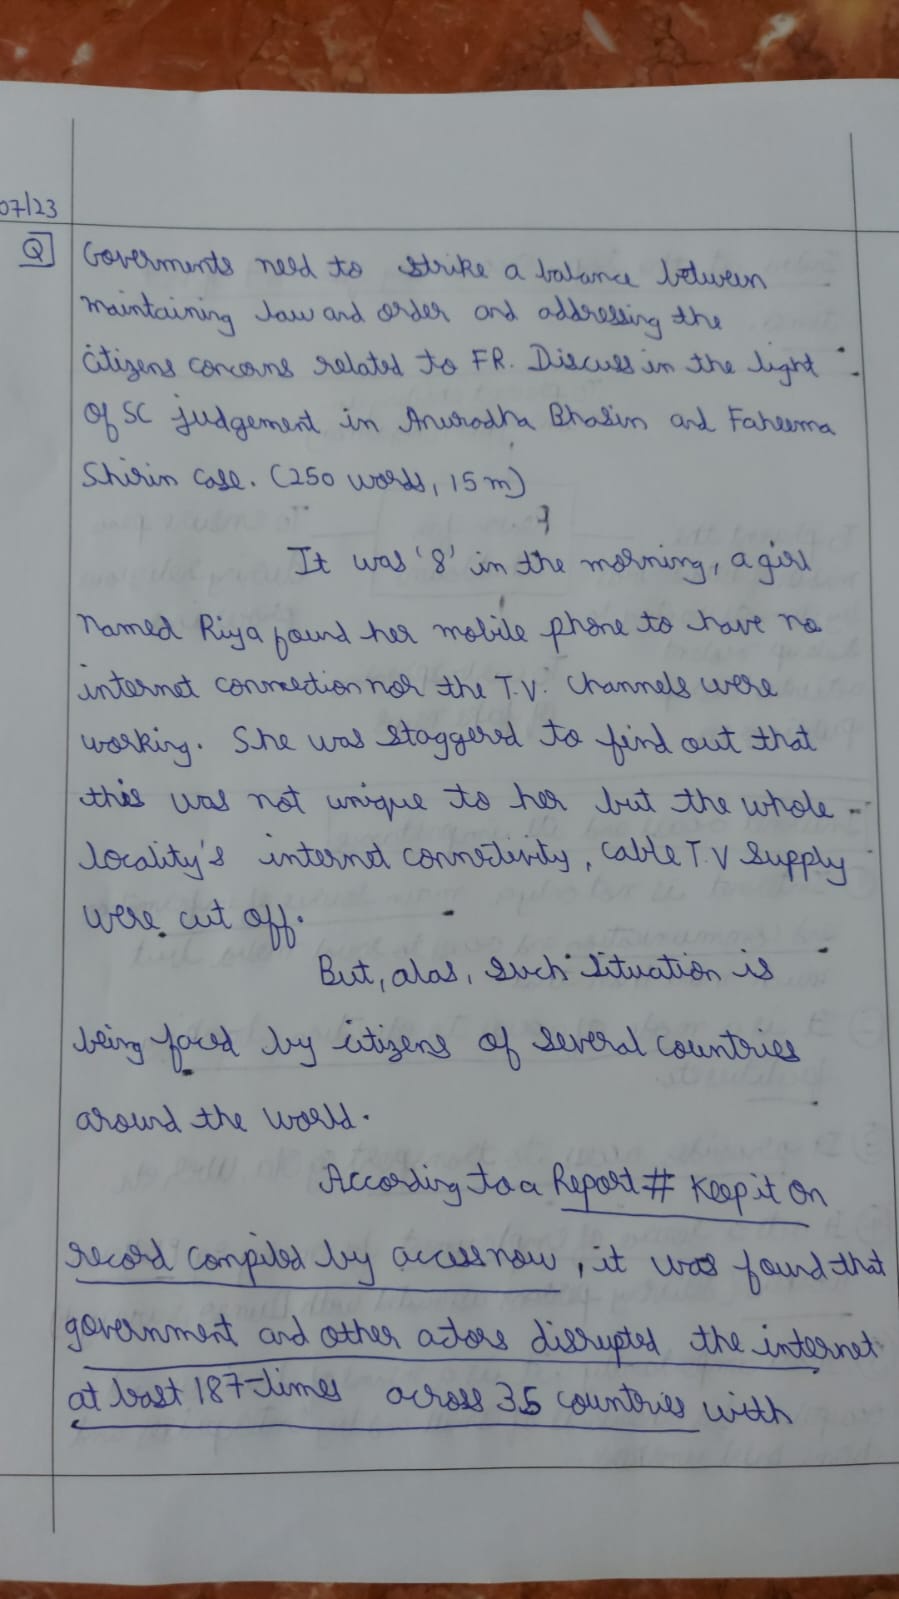 07/23
Q Goverments need to strike a balance between
maintaining law and order and addressing the
citizens concerns related to FR. Discuss in the light
of SC judgement in Anuradha Bhasin and Faheema
Shirin case. (250 words, 15 m)
It was '8' in the morning, a girl
named Riya found her mobile phone to have no
internet connection nor the T.V. Channels were
working. She was staggered to find out that
this was not unique to her but the whole
locality's internet connectivity, cable T.V supply
were cut off.
But, alas, such situation is
being faced by citizens of several countries
around the world.
According to a Report # Keep it On
record compiled by accessnow, it was found that
government and other actors disrupted the internet
at least 187 times across 35 countries with